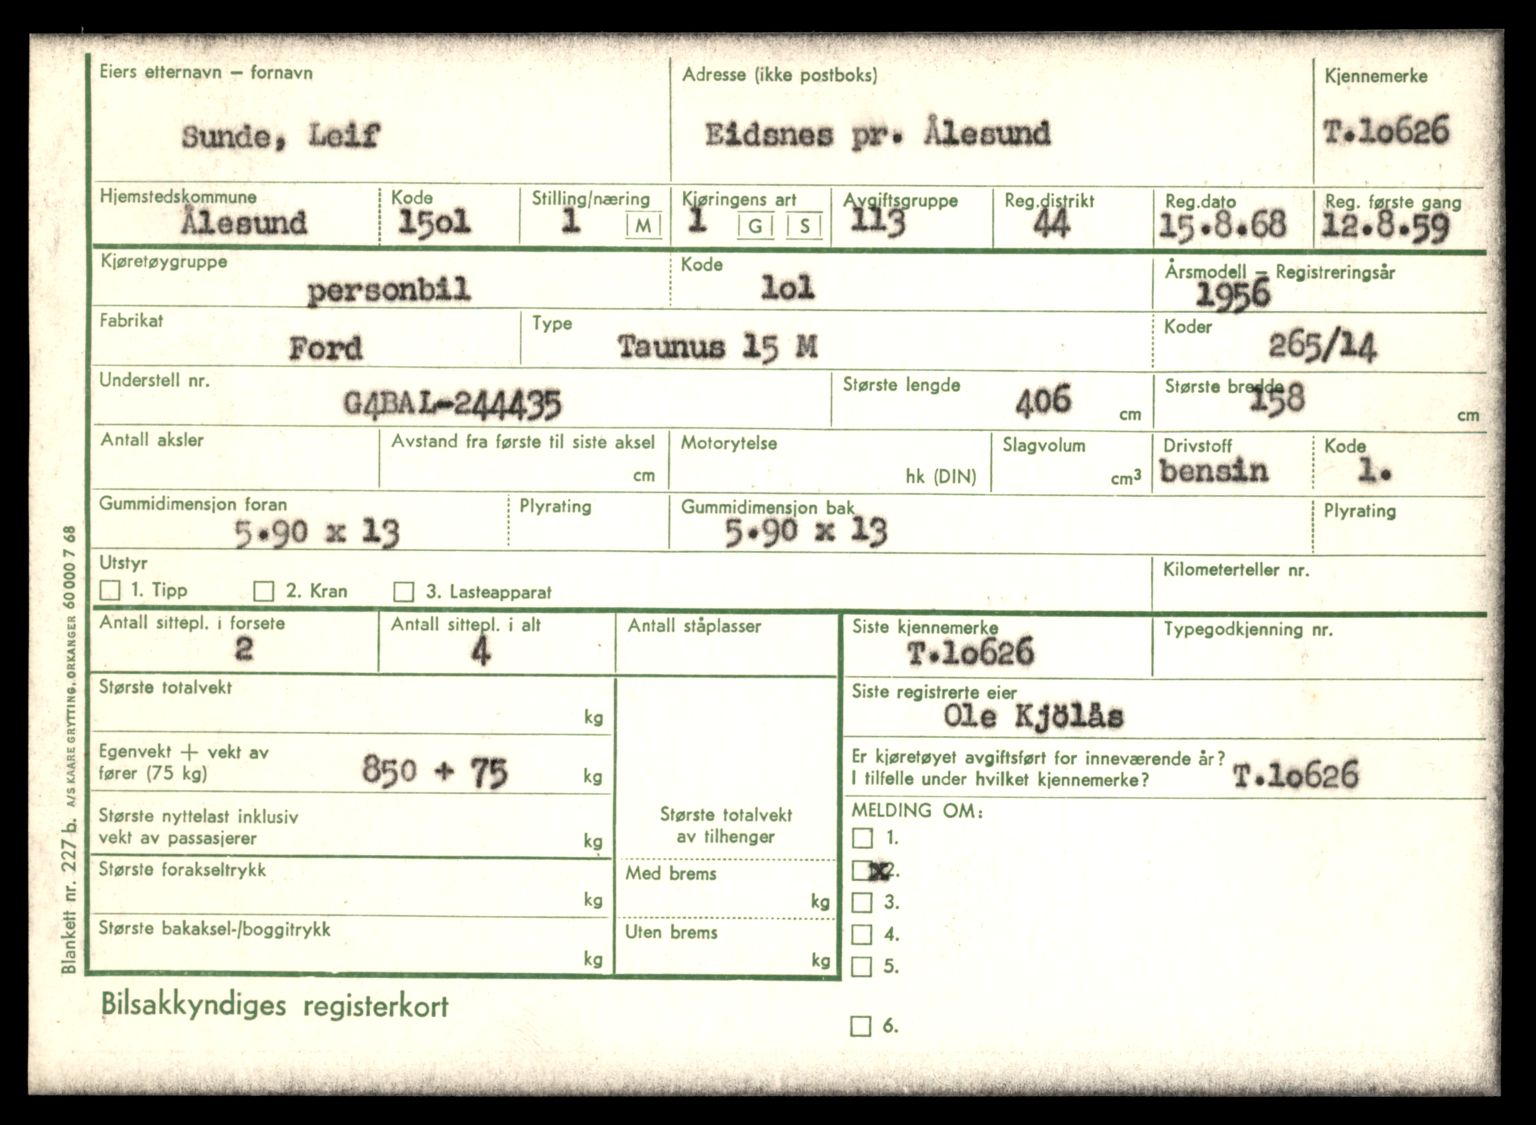 Eiers etternavn – fornavn
Sunde, Leif
Adresse (ikke postboks)
Eidsnes pr. Ålesund
Kjennemerke
T.lo626
Hjemstedskommune
Ålesund
Kode
15ol
Stilling/næring
1 M
Kjøringens art
1 G S
Avgiftsgruppe
113
Reg.distrikt
44
Reg.dato
15.8.68
Reg. første gang
12.8.59
Kjøretøygruppe
personbil
Kode
lol
Årsmodell – Registreringsår
1956
Fabrikat
Ford
Type
Taunus 15 M
Koder
265/14
Understell nr.
G4BAL-244435
Største lengde
406 cm
Største bredde
158 cm
Antall aksler
Avstand fra første til siste aksel
cm
Motorytelse
hk (DIN)
Slagvolum
cm³
Drivstoff
bensin
Kode
1.
Gummidimensjon foran
5.90 x 13
Plyrating
Gummidimensjon bak
5.90 x 13
Plyrating
Utstyr
1. Tipp 2. Kran 3. Lasteapparat
Kilometerteller nr.
Antall sittepl. i forsete
2
Antall sittepl. i alt
4
Antall ståplasser
Siste kjennemerke
T.lo626
Typegodkjenning nr.
Største totalvekt
kg
Siste registrerte eier
Ole Kjölås
Egenvekt + vekt av
fører (75 kg) 850 + 75 kg
Er kjøretøyet avgiftsført for inneværende år?
I tilfelle under hvilket kjennemerke? T.lo626
Største nyttelast inklusiv
vekt av passasjerer kg
Største totalvekt
av tilhenger
MELDING OM:
1.
x2.
3.
4.
5.
6.
Største forakseltrykk
kg
Med brems
kg
Største bakaksel-/boggitrykk
kg
Uten brems
kg
Bilsakkyndiges registerkort
Blankett nr. 227 b. A/S KAARE GRYTTING, ORKANGER 60 000 7 68